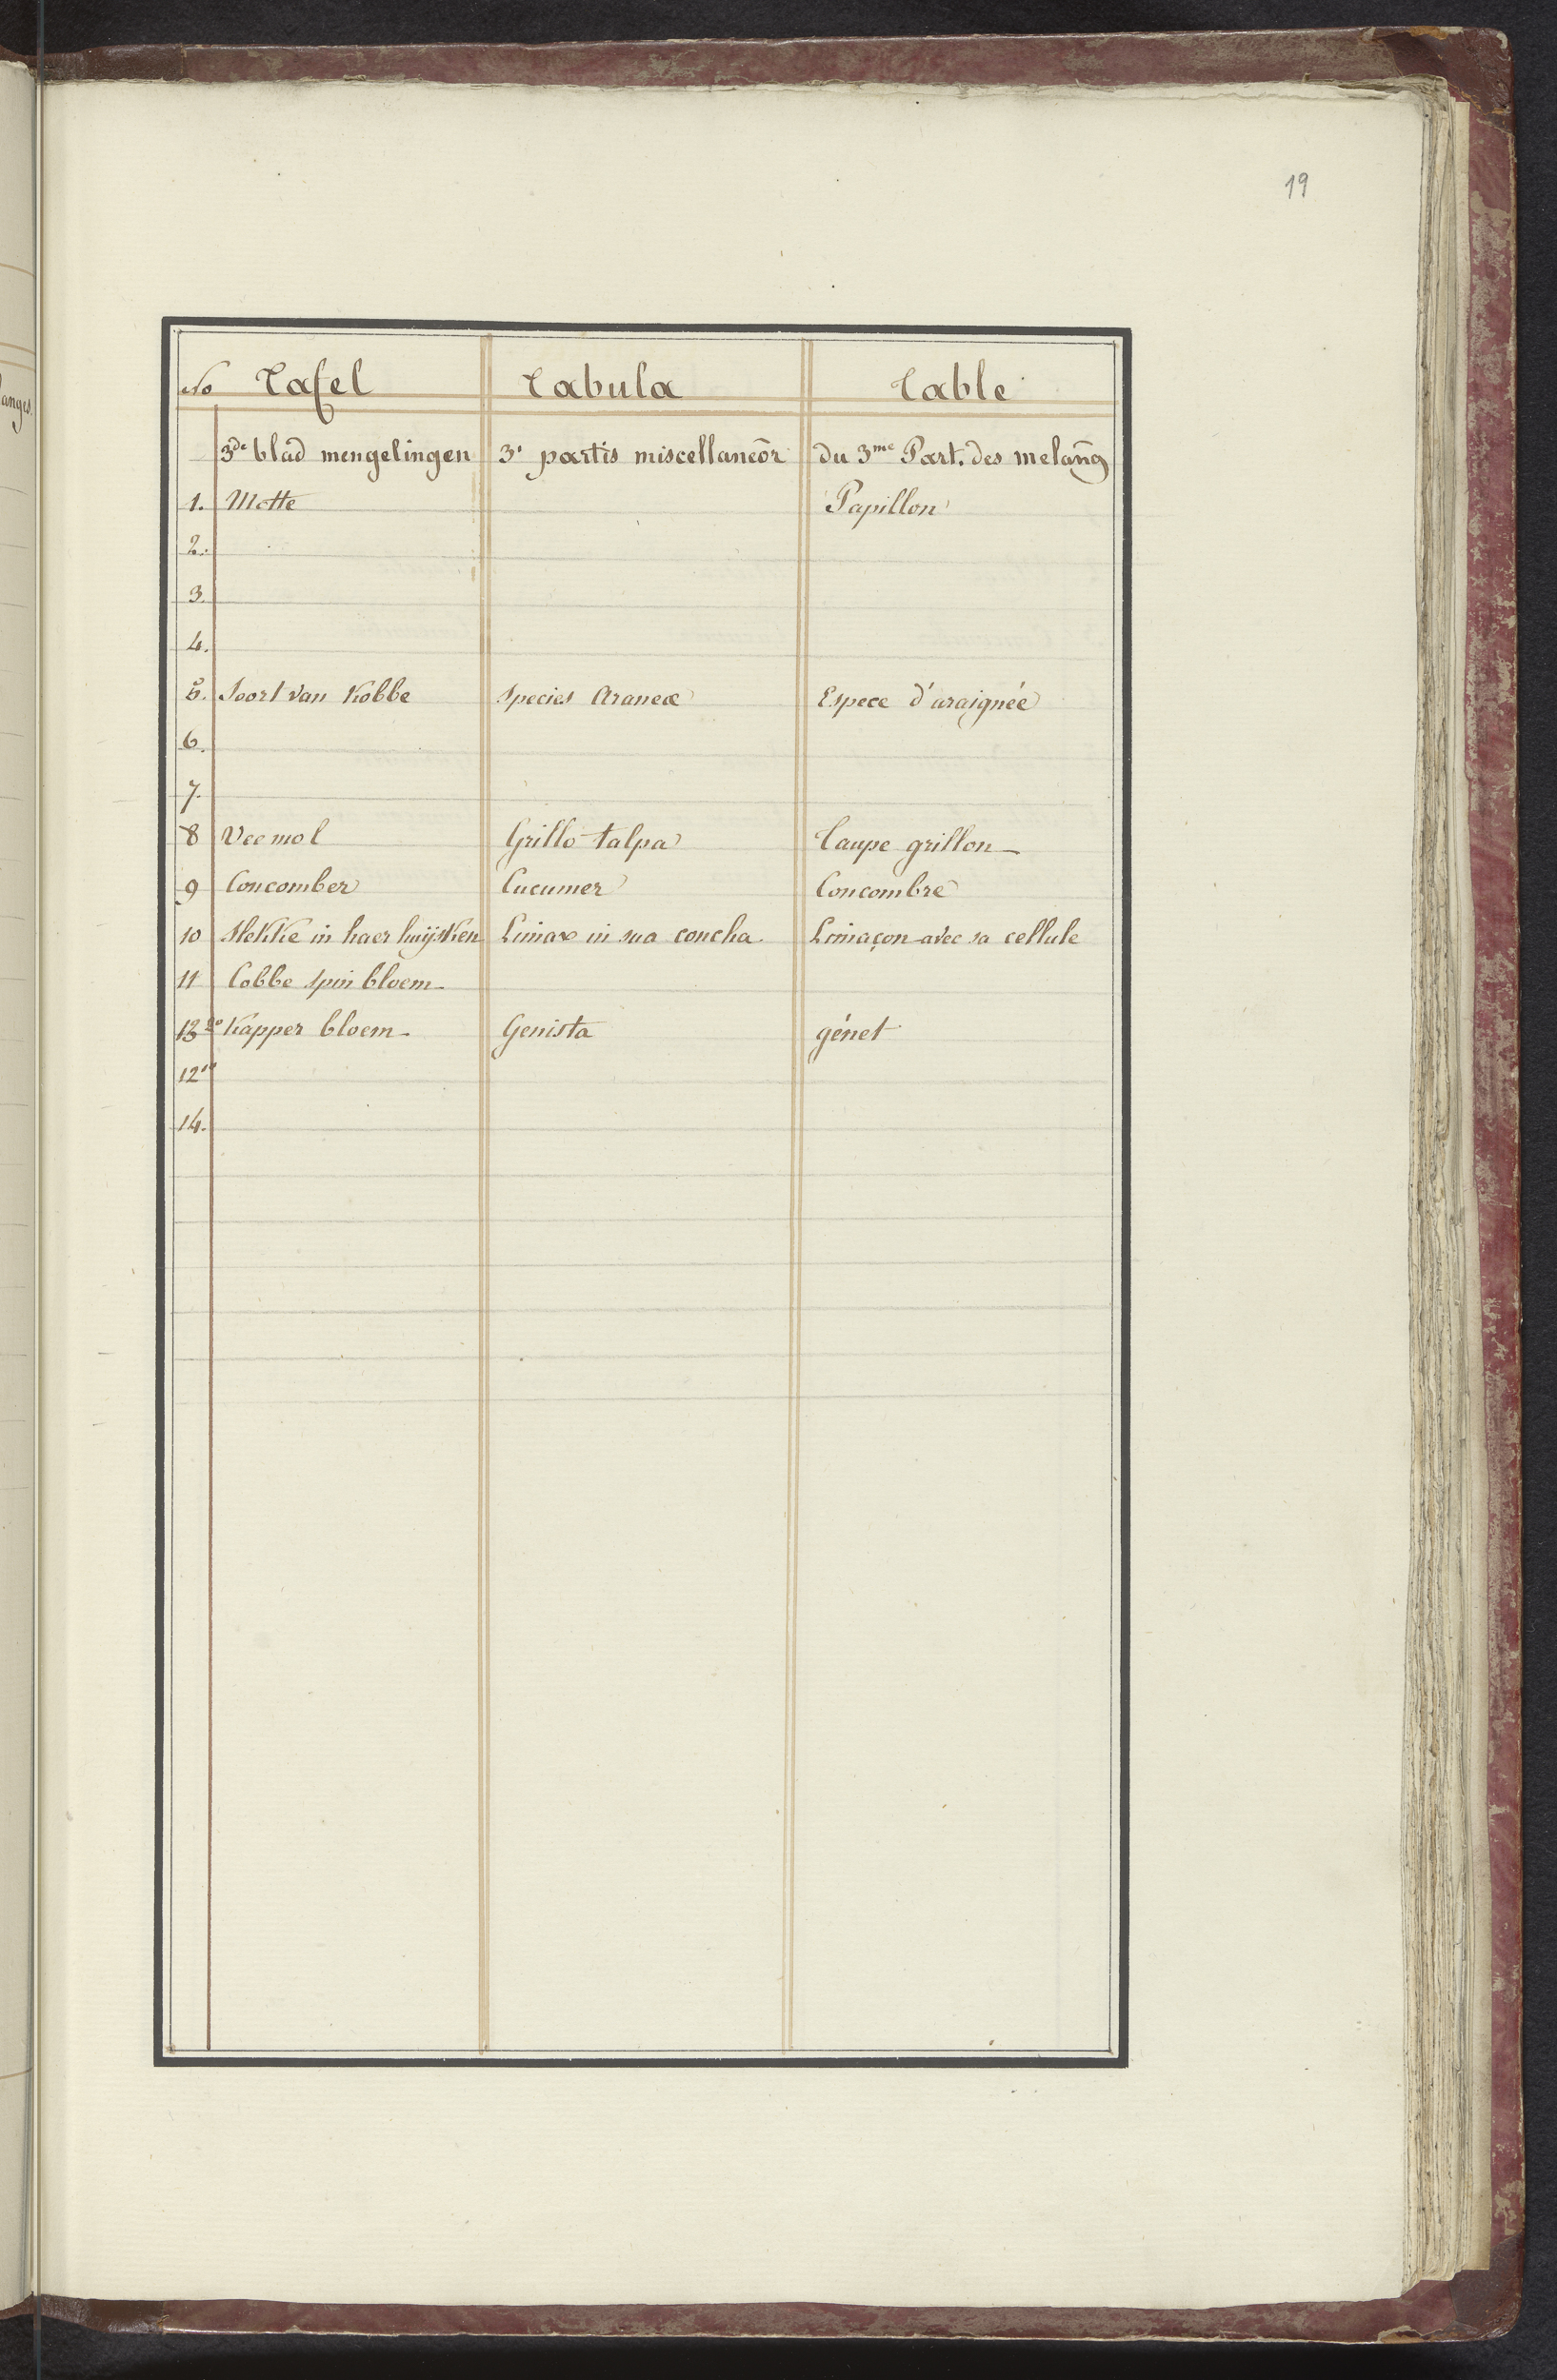 19
No Tafel Tabula Table
3de blad mengelingen 3s partis miscellaneōr du 3me Part. des melan̄g
1. Motte Papillon
2.
3.
4.
5. Soort van Kobbe Species Araneæ Espece d'araignée
6.
7.
8 Veemol Grillo-talpa Taupe grillon
9 Concomber Cucumer Concombre
10 Slekke in haer huijsken Limax in sua concha. Limaçon avec sa cellule
11 Cobbe spin bloem
13 Kapper bloem Genista génet
12
14.
anges.